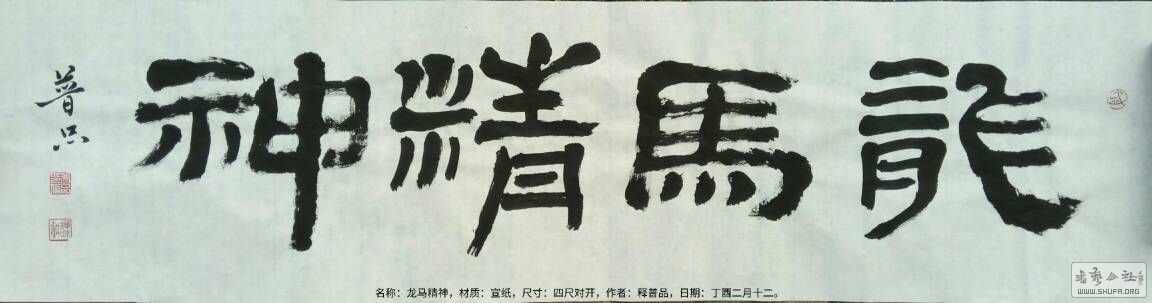 龍馬精神
普品
名称：龙马精神，材质：宣纸，尺寸：四尺对开，作者：释普品，日期：丁酉二月十二。
书艺公社
WWW.SHUFA.ORG